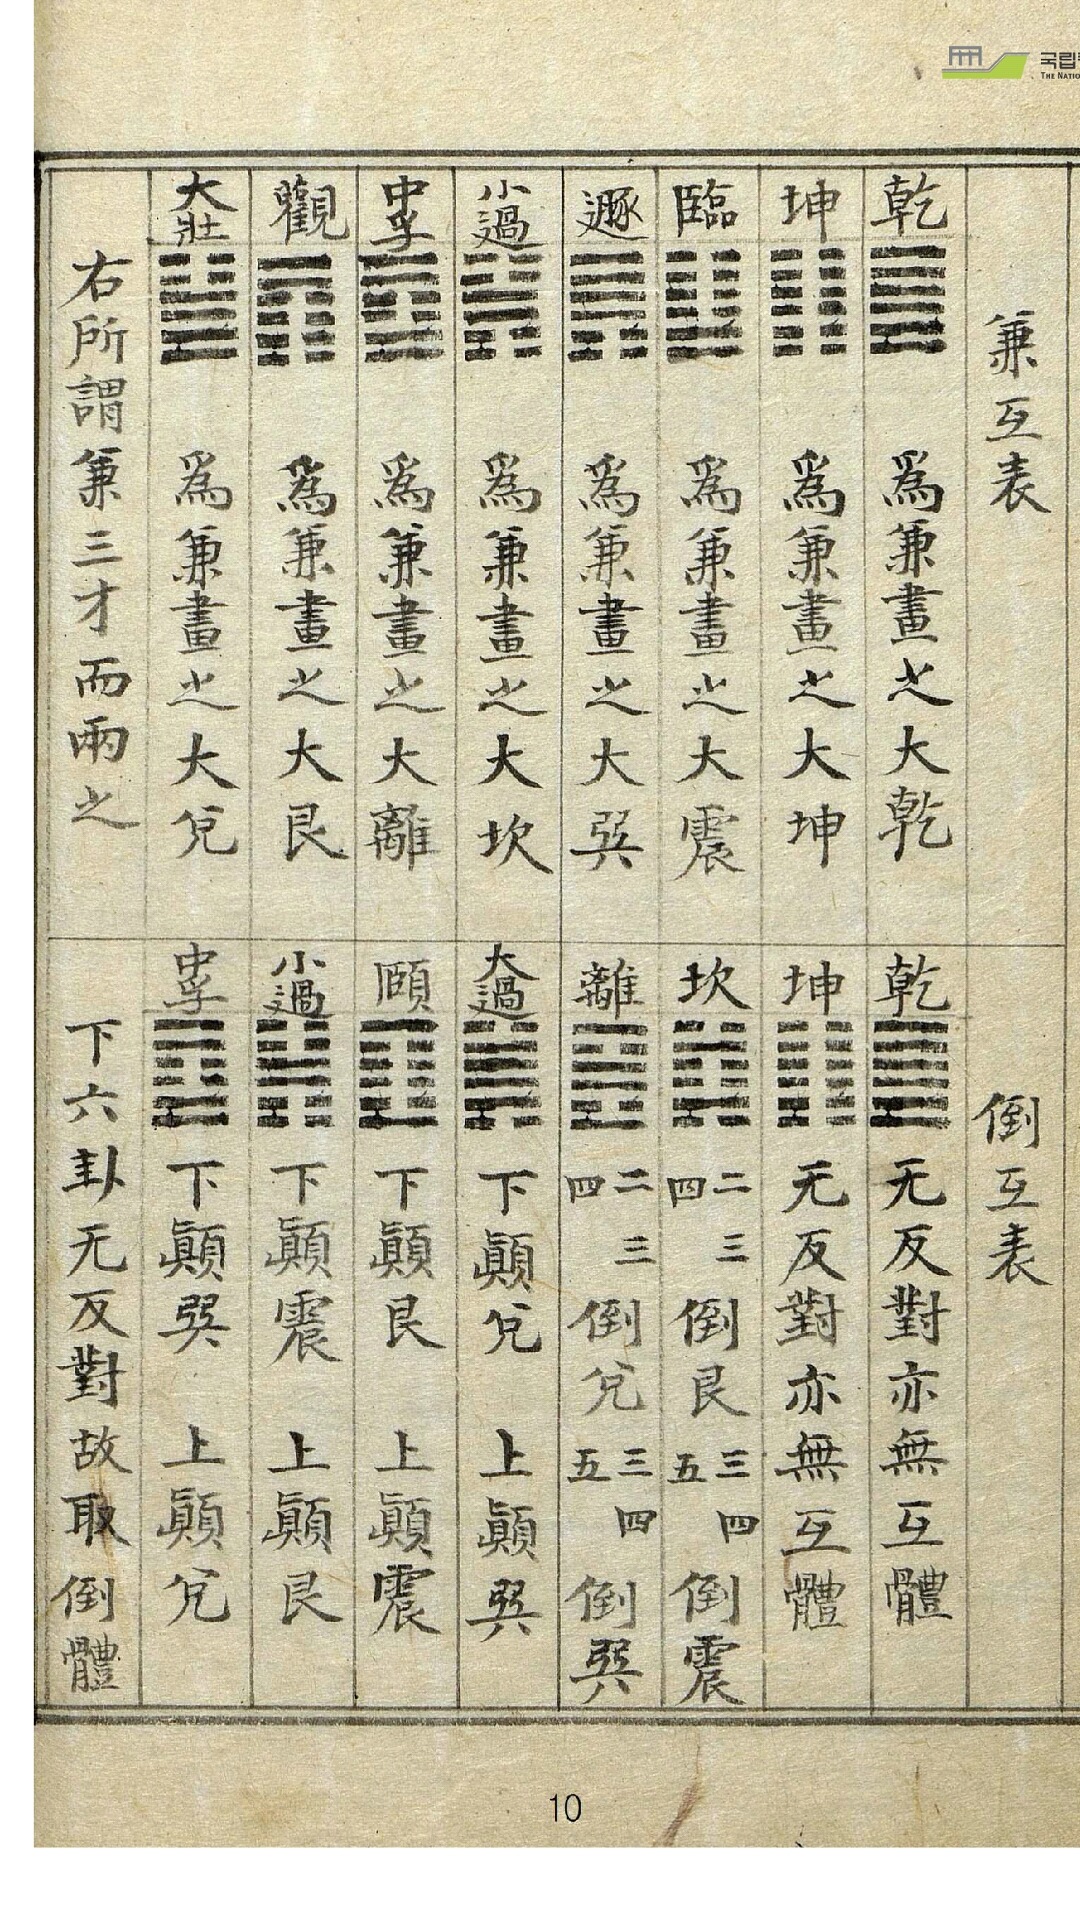 국립
THE NATIO
兼互表
乾 爲兼畫之大乾
坤 爲兼畫之大坤
臨 爲兼畫之大震
遯 爲兼畫之大巽
小過 爲兼畫之大坎
中孚 爲兼畫之大離
觀 爲兼畫之大艮
大壯 爲兼畫之大兌
右所謂兼三才而兩之
倒互表
乾 无反對亦無互體
坤 无反對亦無互體
坎 二三四倒艮三四五倒震
離 二三四倒兌三四五倒巽
大過 下顚兌 上顚巽
頤 下顚艮 上顚震
小過 下顚震 上顚艮
中孚 下顚巽 上顚兌
下六卦无反對故取倒體
10